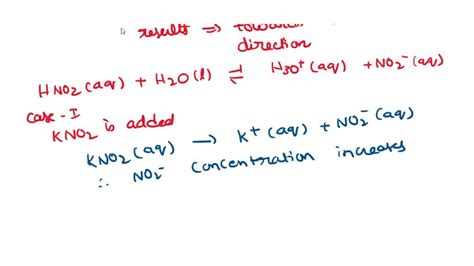 results ⇒ towards
direction
HNO2(aq) + H2O(l) ⇌ H3O+(aq) + NO2-(aq)
Case-I
KNO2 is added
KNO2(aq) → K+(aq) + NO2-(aq)
∴ NO2- concentration increases